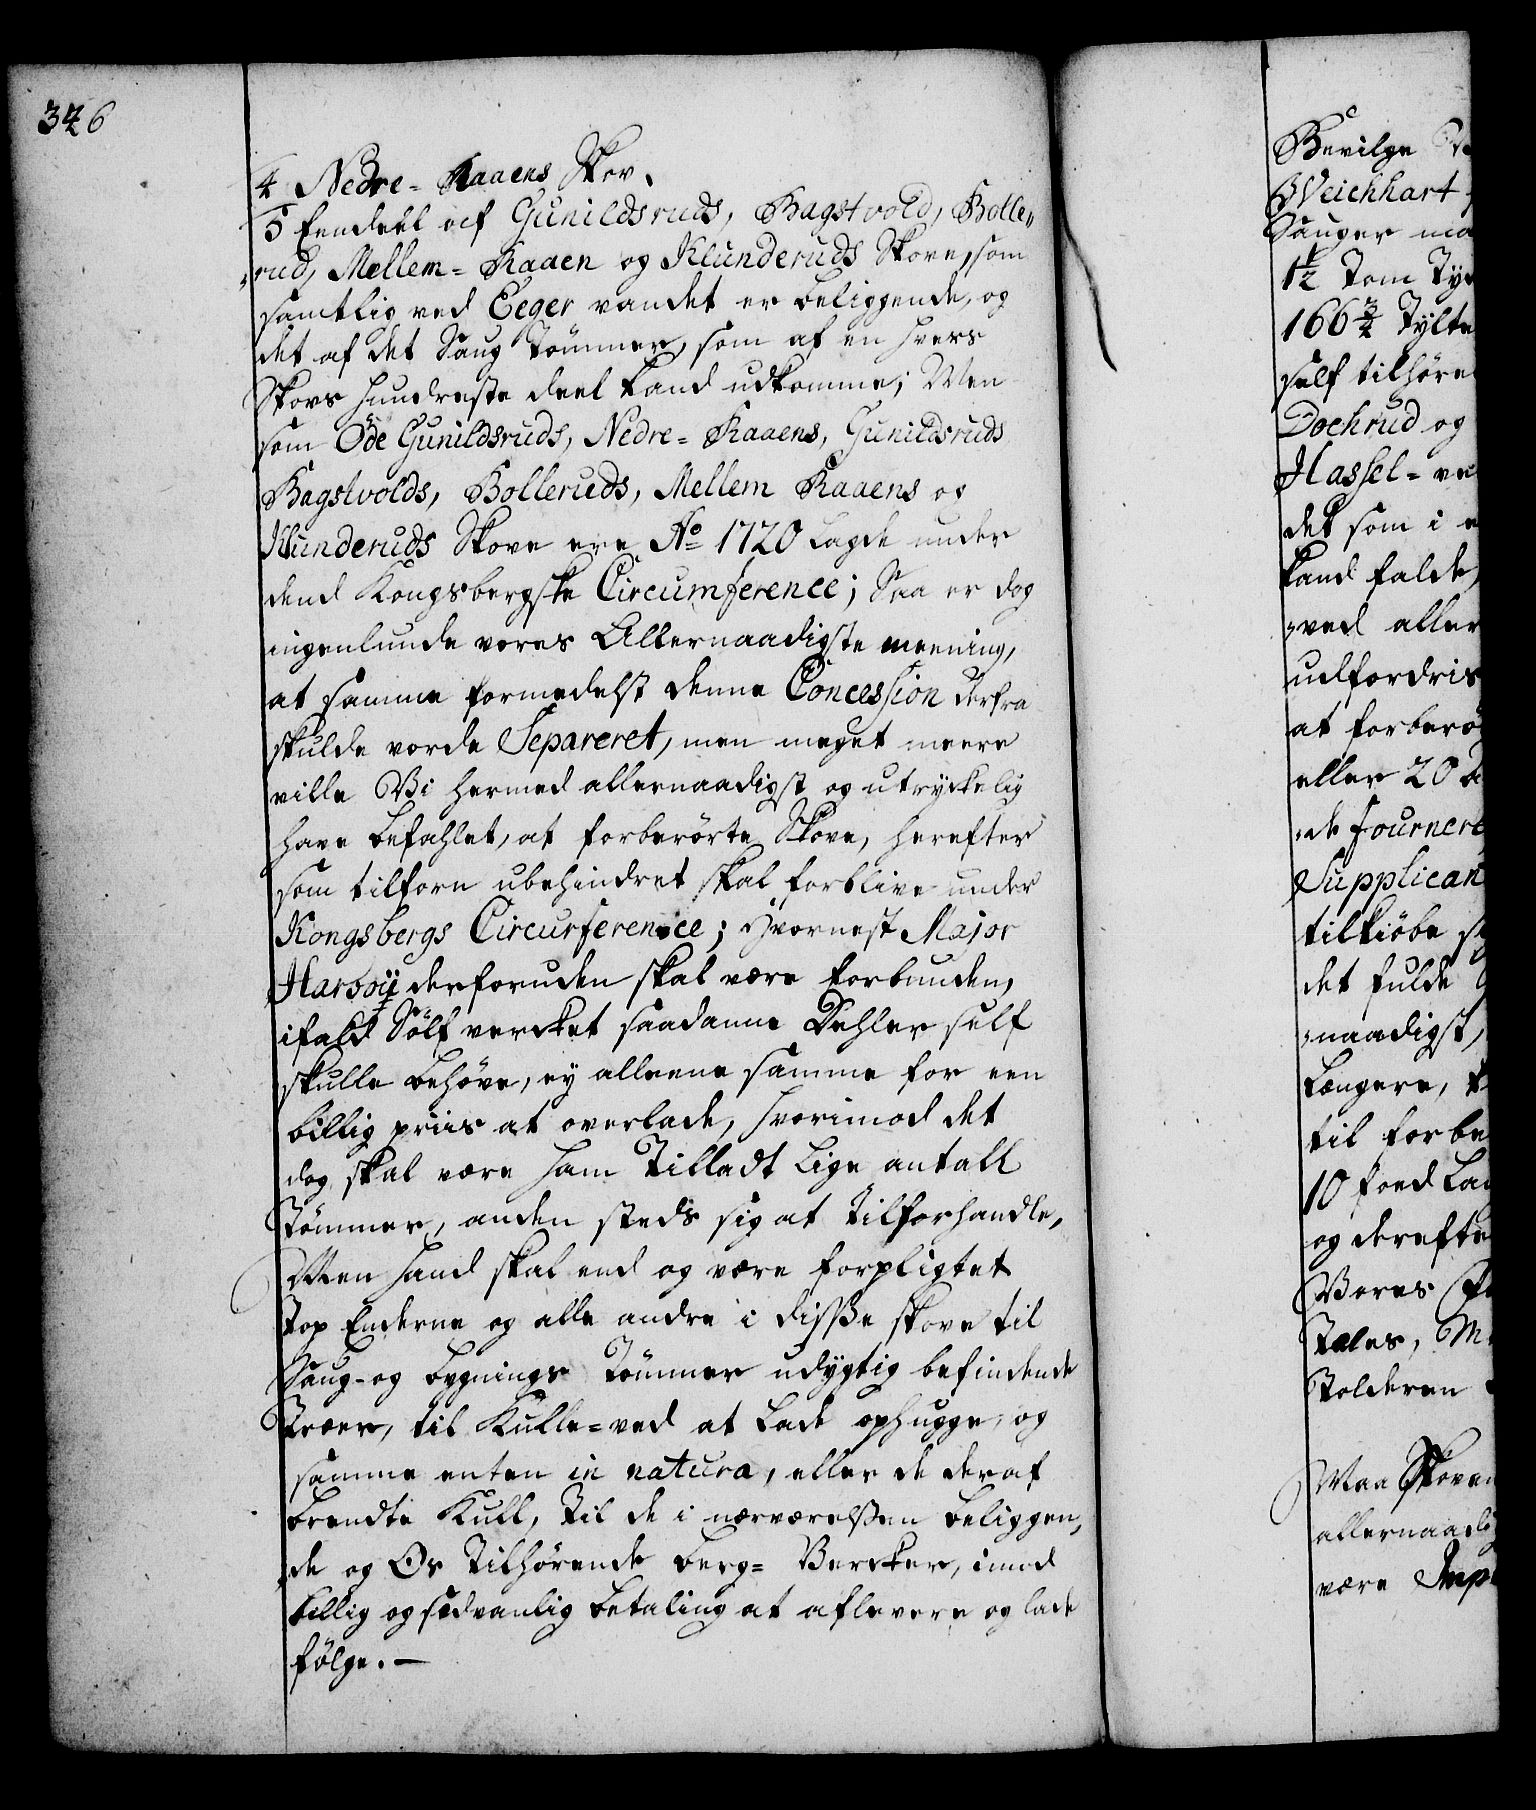 346
4 Nedre- Raaens Skov.
5 Eendeel af Gunildsruds, Bagstvold, Bolle„
„rud, Mellem- Raaen og Klunderuds Skove, som
samtlig ved Eeger vandet er beliggende, og
det af det Saug Tömmer, som af en hvers
Skovs hundreste deel kand udkomme; Men
som Öde Gunildsruds, Nedre- Raaens, Gunildsruds
Bagstvolds, Bolleruds, Mellem Raaens og
Klunderuds Skove ere Ao 1720 lagde under
dend Kongsbergske Circumference; Saa er dog
ingenlunde vores Allernaadigste meening,
at samme formedelst denne Concession derfra
skulde vorde Separeret, men meget meere
ville Vi hermed allernaadigst og utryckelig
have befahlet, at forberörte Skove, herefter
som tilforn ubehindret skal forblive under
Kongsbergs Circumference; Hvornest Major
Harboÿ desforuden skal være forbunden,
ifald Sölfvercket saadanne Dehler self
skulle behöve, ey alleene samme for een
billig priis at overlade, hvorimod det
dog skal være ham Tilladt lige antall
Tömmer, anden steds sig at Tilforhandle,
Men hand skal end og være forpligtet
Top Enderne og alle andre i disse skove til
Saug- og bygnings Tömmer udygtig befindende
Træer, til Kulle=ved at lade ophugge, og
samme enten in natura, eller de deraf
brendte Kull, Til de i nærværelsen beliggen„
„de og Os Tilhörende berg= Vercker, imod
billig og sædvanlig betaling at aflevere og lade
fölge. —
Bevilge
Weichhart
Sauger ma
1½ Tom Ty
166¾ Tylte
self tilhöre
Dochrud og
Hassel- ve
det som i
kand falde,
„ved aller
udfordris
at forberö
eller 20
„de fournere
Supplican
tilkiöbe
det fulde
„naadigst,
længere,
til forbe
10 foed La
og derefte
Vores
Tales, M
Tolderen
Maa Skoven
allernaadig
være Imp